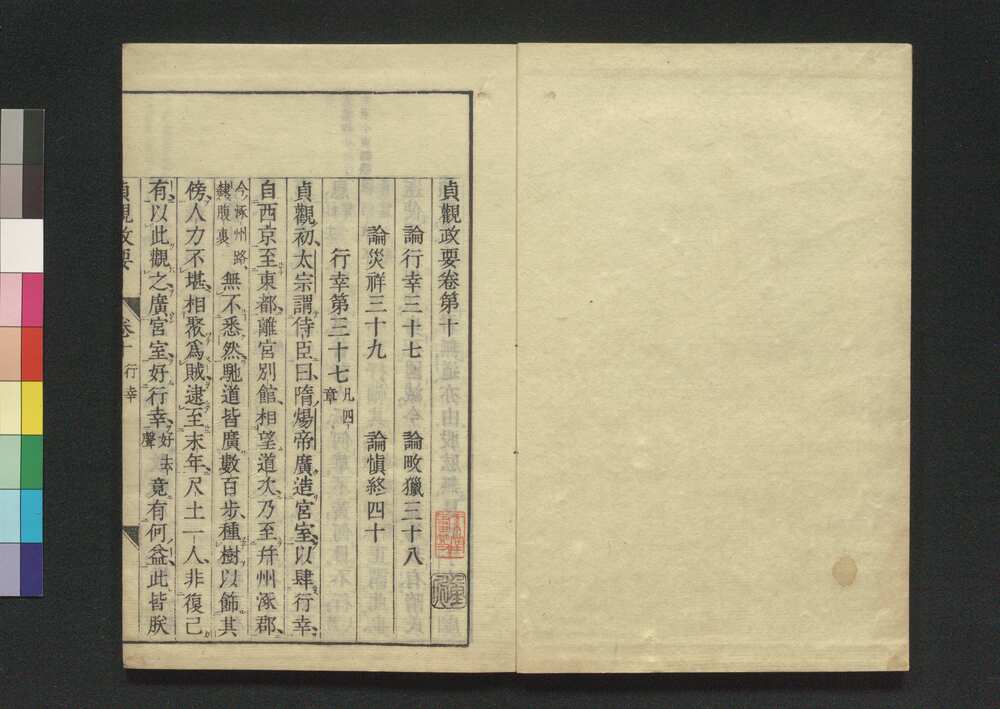 貞觀政要卷第十
論行幸三十七 論畋獵三十八
論災祥三十九 論愼終四十
行幸第三十七凡四章
貞觀初、太宗謂侍臣曰、隋煬帝廣造宮室、以肆行幸、
自西京至東都、離宮別館、相望道次、乃至幷州涿郡、
今涿州路、隸腹裏無不悉然、馳道皆廣數百歩、種樹以飾其
傍、人力不堪、相聚爲賊、逮至末年、尺土一人、非復己
有、以此觀之、廣宮室、好行幸、好去聲竟有何益、此皆朕
貞觀政要 卷十 行幸